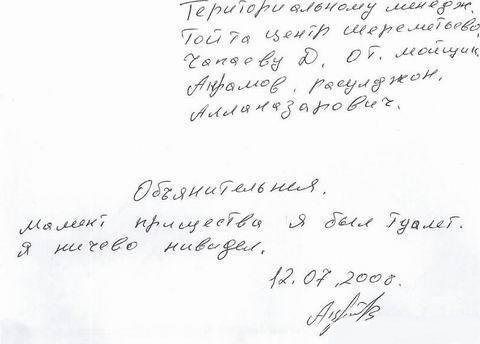 Териториальному менедж.
Тойта центр шереметьево
Чапаеву Д. От. мойщик
Акрамов. расулджон.
Алланазарович.
Обьянительная.
мамент прищества я был туалет.
я ничево нивидел.
12.07.2008.